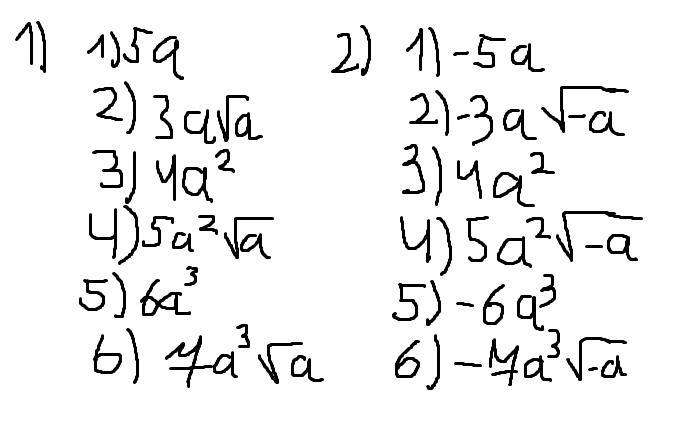 1) 1) 5a
2) 3a√a
3) 4a²
4) 5a²√a
5) 6a³
6) 7a³√a
2) 1) -5a
2) -3a√-a
3) 4a²
4) 5a²√-a
5) -6a³
6) -7a³√-a